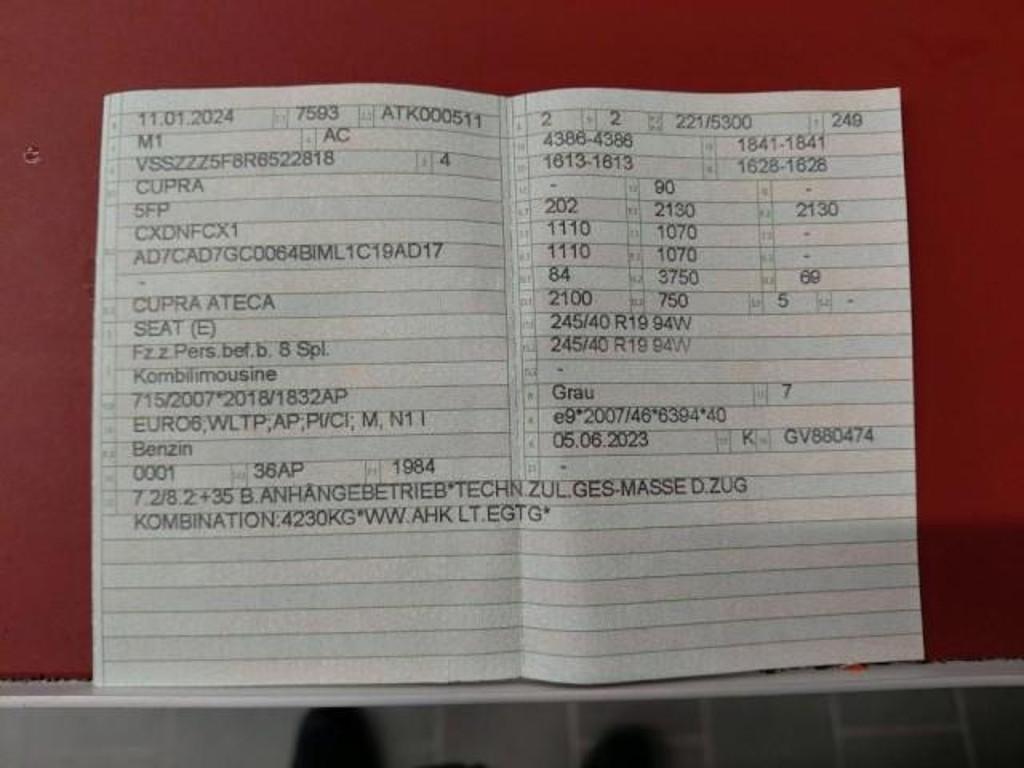 11.01.2024 7593 ATK000511
M1 AC
VSSZZZ5F8R6522818 4
CUPRA
5FP
CXDNFCX1
AD7CAD7GC0064BIML1C19AD17
-
CUPRA ATECA
SEAT (E)
Fz.z.Pers.bef.b. 8 Spl.
Kombilimousine
715/2007*2018/1832AP
EURO6;WLTP;AP;PI/CI; M, N1 I
Benzin
0001 36AP 1984
2 2 221/5300 249
4386-4386 1841-1841
1613-1613 1628-1628
- 90 -
202 2130 2130
1110 1070 -
1110 1070 -
84 3750 69
2100 750 5 -
245/40 R19 94W
245/40 R19 94W
-
Grau 7
e9*2007/46*6394*40
05.06.2023 K GV880474
-
7.2/8.2:+35 B.ANHÄNGEBETRIEB*TECHN.ZUL.GES-MASSE D.ZUG
KOMBINATION:4230KG*WW.AHK LT.EGTG*